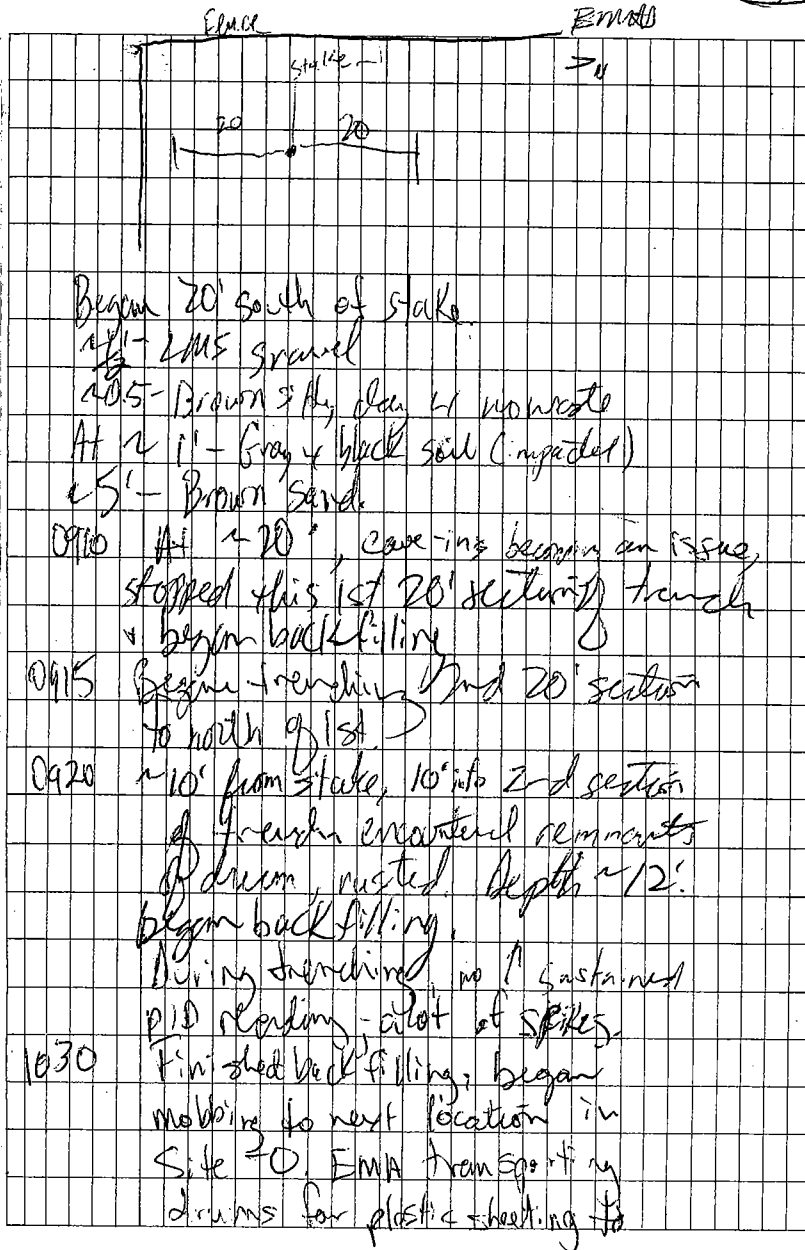 Fence
stake
N
20 20
Began 20' south of stake.
LMS gravel
~0.5 - Brown silty clay w no waste
At ~ 1' - Gray & black soil (impacted)
~5' - Brown Sand.
0910 At ~20', cave-ins becoming an issue,
stopped this 1st 20' section of trench
& began backfilling
0915 Began trenching 2nd 20' section
to north of 1st.
0920 ~10' from stake, 10' into 2nd section
of trench encountered remnants
of drum, rusted. Depth ~12'.
began backfilling.
During trenching, no ↑ sustained
PID reading - alot of spikes.
1030 Finished backfilling; began
mobbing to next location in
Site O. EMA transporting
drums for plastic sheeting to